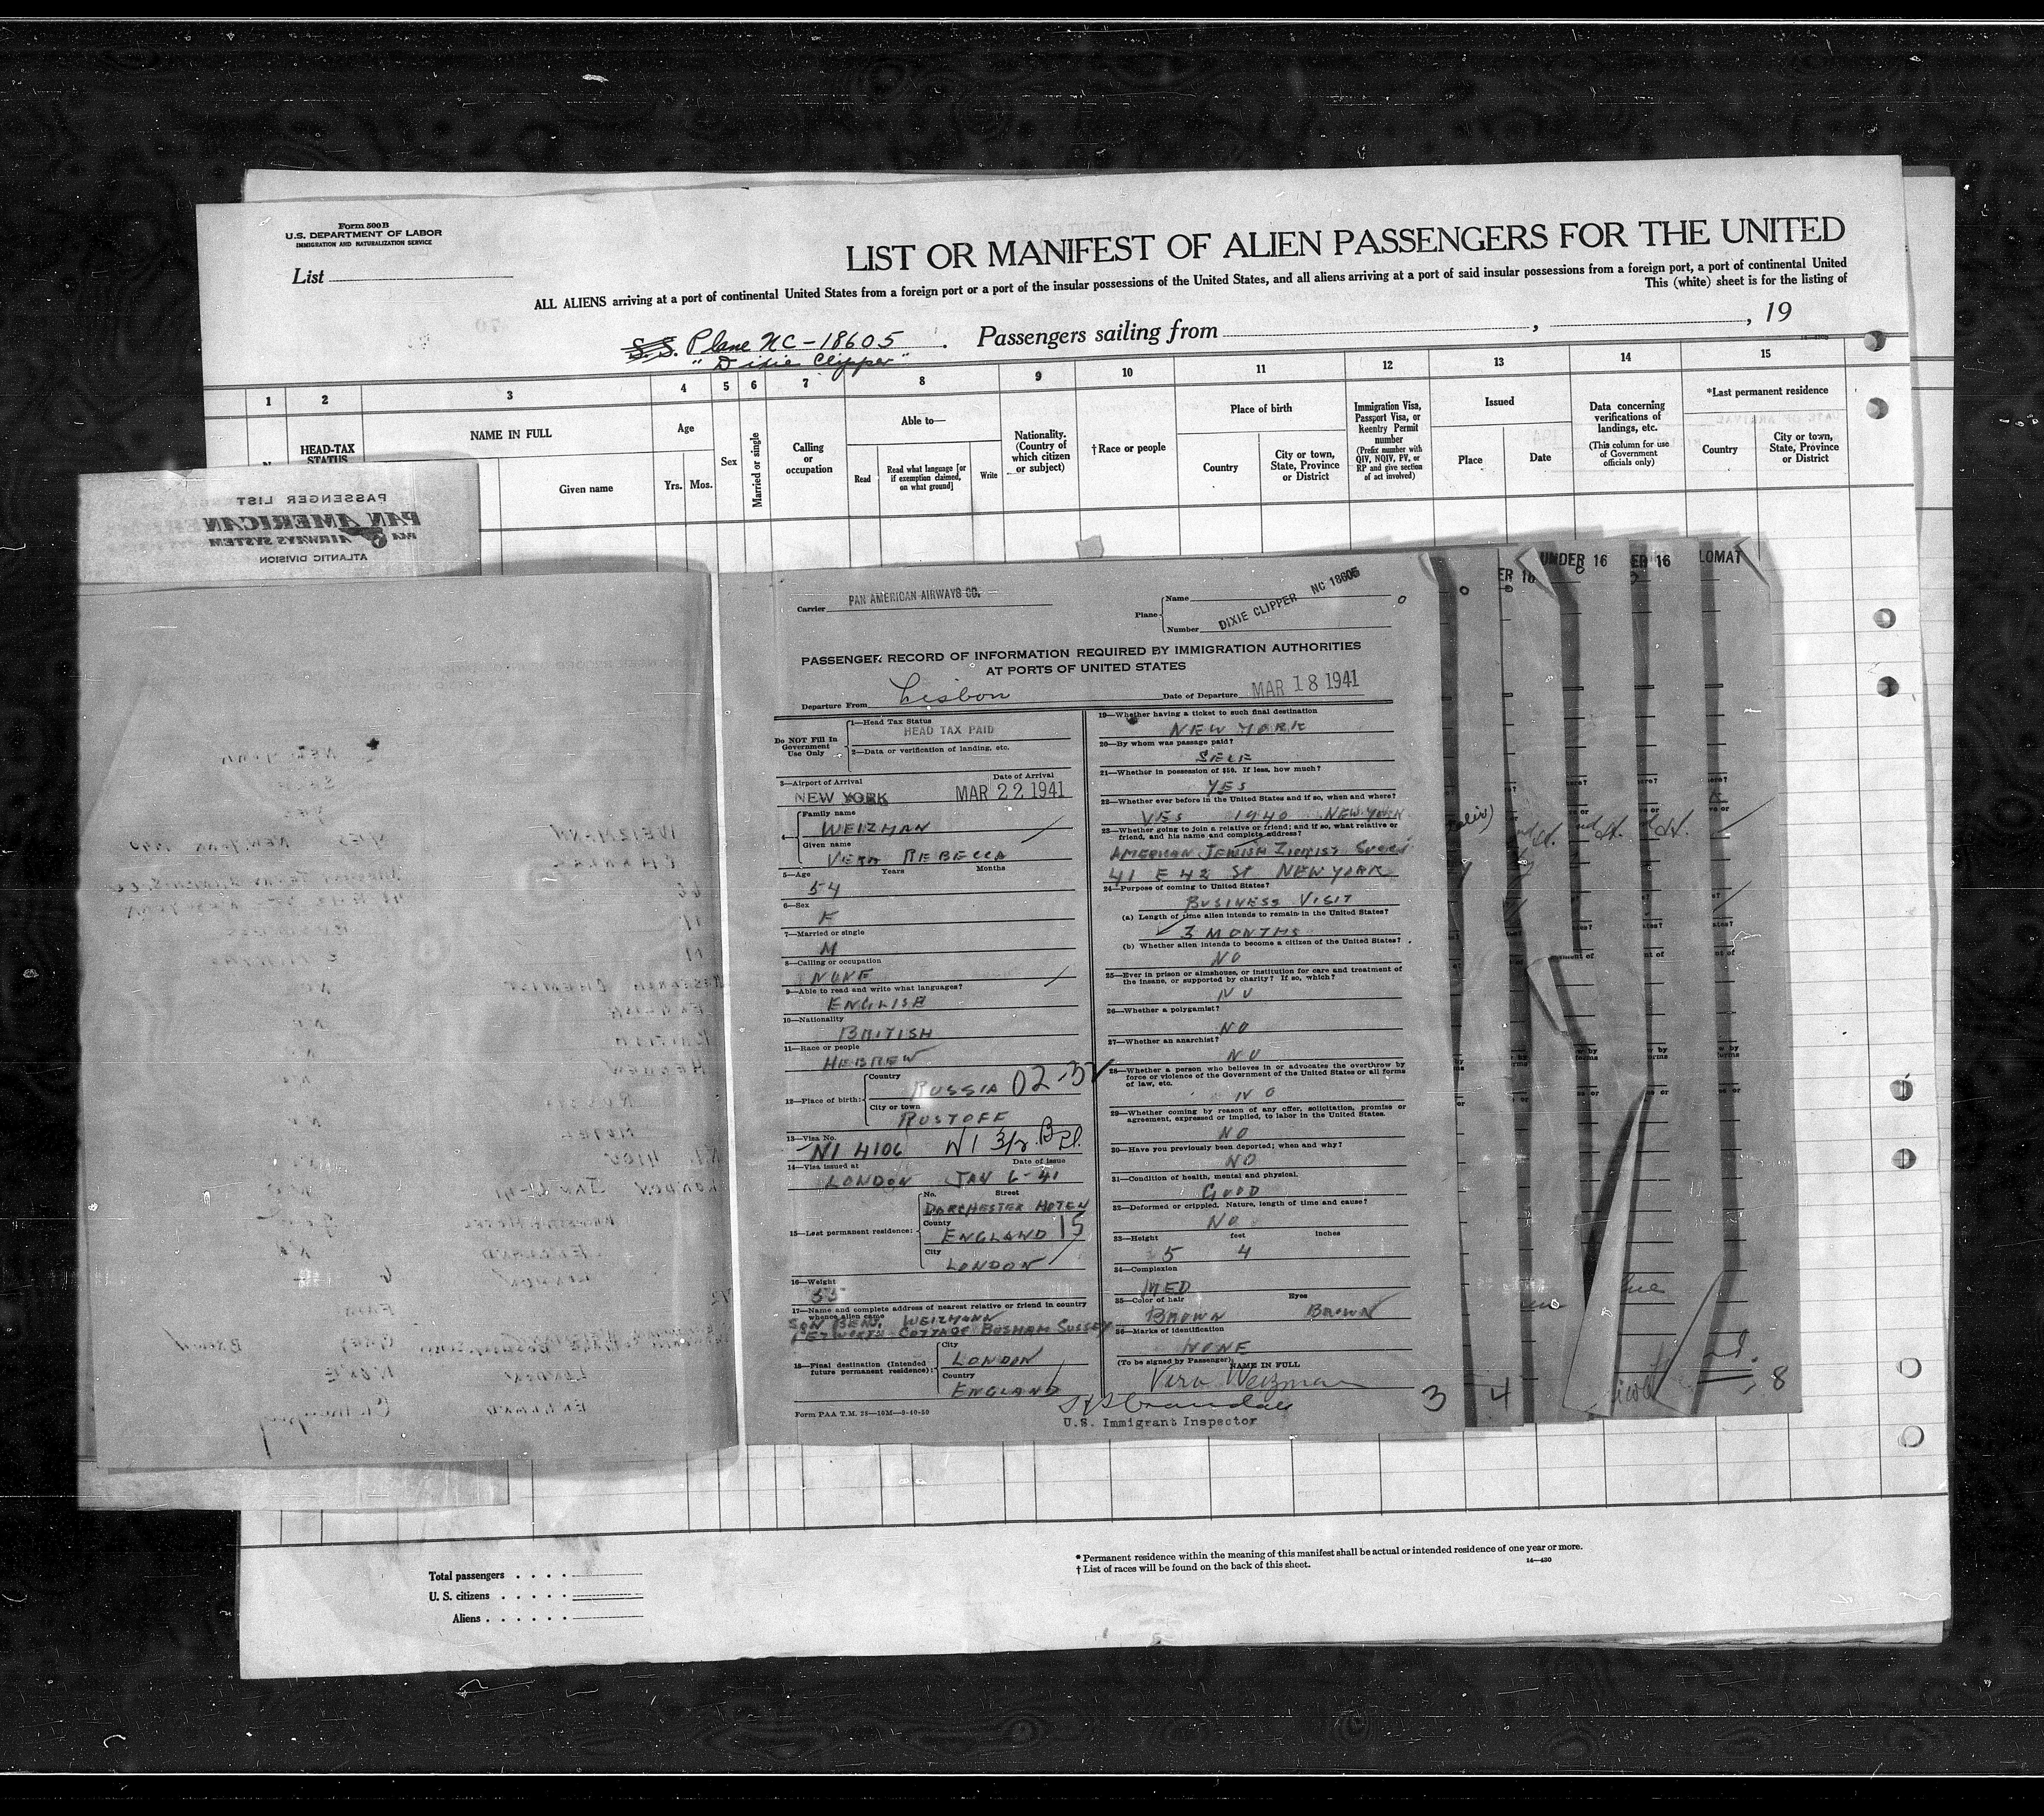 Form 500 B
U.S. DEPARTMENT OF LABOR
IMMIGRATION AND NATURALIZATION SERVICE
List
LIST OR MANIFEST OF ALIEN PASSENGERS FOR THE UNITED
ALL ALIENS arriving at a port of continental United States from a foreign port or a port of the insular possessions of the United States, and all aliens arriving at a port of said insular possessions from a foreign port, a port of continental United
This (white) sheet is for the listing of
S.S. Plane NC-18605. Passengers sailing from , , 19
"Dixie Clipper"
1 2 3 4 5 6 7 8 9 10 11 12 13 14 15
HEAD-TAX STATUS
NAME IN FULL
Given name
Age
Yrs. Mos.
Sex
Married or single
Calling or occupation
Able to—
Read
Read what language [or if exemption claimed, on what ground]
Write
Nationality. (Country of which citizen or subject)
†Race or people
Place of birth
Country
City or town, State, Province or District
Immigration Visa, Passport Visa, or Reentry Permit number
(Prefix number with QIV, NQIV, PV, or RP and give section of act involved)
Issued
Place
Date
Data concerning verifications of landings, etc.
(This column for use of Government officials only)
*Last permanent residence
Country
City or town, State, Province or District
PASSENGER LIST
PAN AMERICAN
PAA AIRWAYS SYSTEM
ATLANTIC DIVISION
Carrier PAN AMERICAN AIRWAYS CO.
Plane
Name
Number DIXIE CLIPPER NC 18605
PASSENGER RECORD OF INFORMATION REQUIRED BY IMMIGRATION AUTHORITIES
AT PORTS OF UNITED STATES
Departure From Lisbon Date of Departure MAR 18 1941
Do NOT Fill In Government Use Only
1—Head Tax Status
HEAD TAX PAID
2—Data or verification of landing, etc.
3—Airport of Arrival Date of Arrival
NEW YORK MAR 22 1941
4— Family name
WEIZMAN
Given name
VERA REBECCA
5—Age Years Months
54
6—Sex
F
7—Married or single
M
8—Calling or occupation
NONE
9—Able to read and write what languages?
ENGLISH
10—Nationality
BRITISH
11—Race or people
HEBREW
12—Place of birth:
Country
RUSSIA 02-32
City or town
ROSTOFF
13—Visa No.
NI 4106 NI 3/2 Bpl.
14—Visa issued at Date of issue
LONDON JAN 6-41
15—Last permanent residence:
No. Street
DORCHESTER HOTEL
County
ENGLAND 15
City
LONDON
16—Weight
55
17—Name and complete address of nearest relative or friend in country whence alien came
SON BENJ. WEIZMANN
PETWORTH COTTAGE BOSHAM SUSSEX
18—Final destination (Intended future permanent residence):
City
LONDON
Country
ENGLAND
Form PAA T.M. 28—10M—9-40-50
19—Whether having a ticket to such final destination
NEW YORK
20—By whom was passage paid?
SELF
21—Whether in possession of $50. If less, how much?
YES
22—Whether ever before in the United States and if so, when and where?
YES 1940 NEW YORK
23—Whether going to join a relative or friend; and if so, what relative or friend, and his name and complete address?
AMERICAN JEWISH ZIONIST
41 E 42 ST. NEW YORK
24—Purpose of coming to United States?
BUSINESS VISIT
(a) Length of time alien intends to remain in the United States?
3 MONTHS
(b) Whether alien intends to become a citizen of the United States?
NO
25—Ever in prison or almshouse, or institution for care and treatment of the insane, or supported by charity? If so, which?
NO
26—Whether a polygamist?
NO
27—Whether an anarchist?
NO
28—Whether a person who believes in or advocates the overthrow by force or violence of the Government of the United States or all forms of law, etc.
NO
29—Whether coming by reason of any offer, solicitation, promise or agreement, expressed or implied, to labor in the United States.
NO
30—Have you previously been deported; when and why?
NO
31—Condition of health, mental and physical.
GOOD
32—Deformed or crippled. Nature, length of time and cause?
NO
33—Height feet inches
5 4
34—Complexion
MED
35—Color of hair Eyes
BROWN BROWN
36—Marks of identification
NONE
(To be signed by Passenger) NAME IN FULL
Vera Weizman
U.S. Immigrant Inspector
3 4 8
ER 16 UNDER 16 ER 16 LOMAT
Total passengers
U. S. citizens
Aliens
* Permanent residence within the meaning of this manifest shall be actual or intended residence of one year or more.
† List of races will be found on the back of this sheet.
14—430